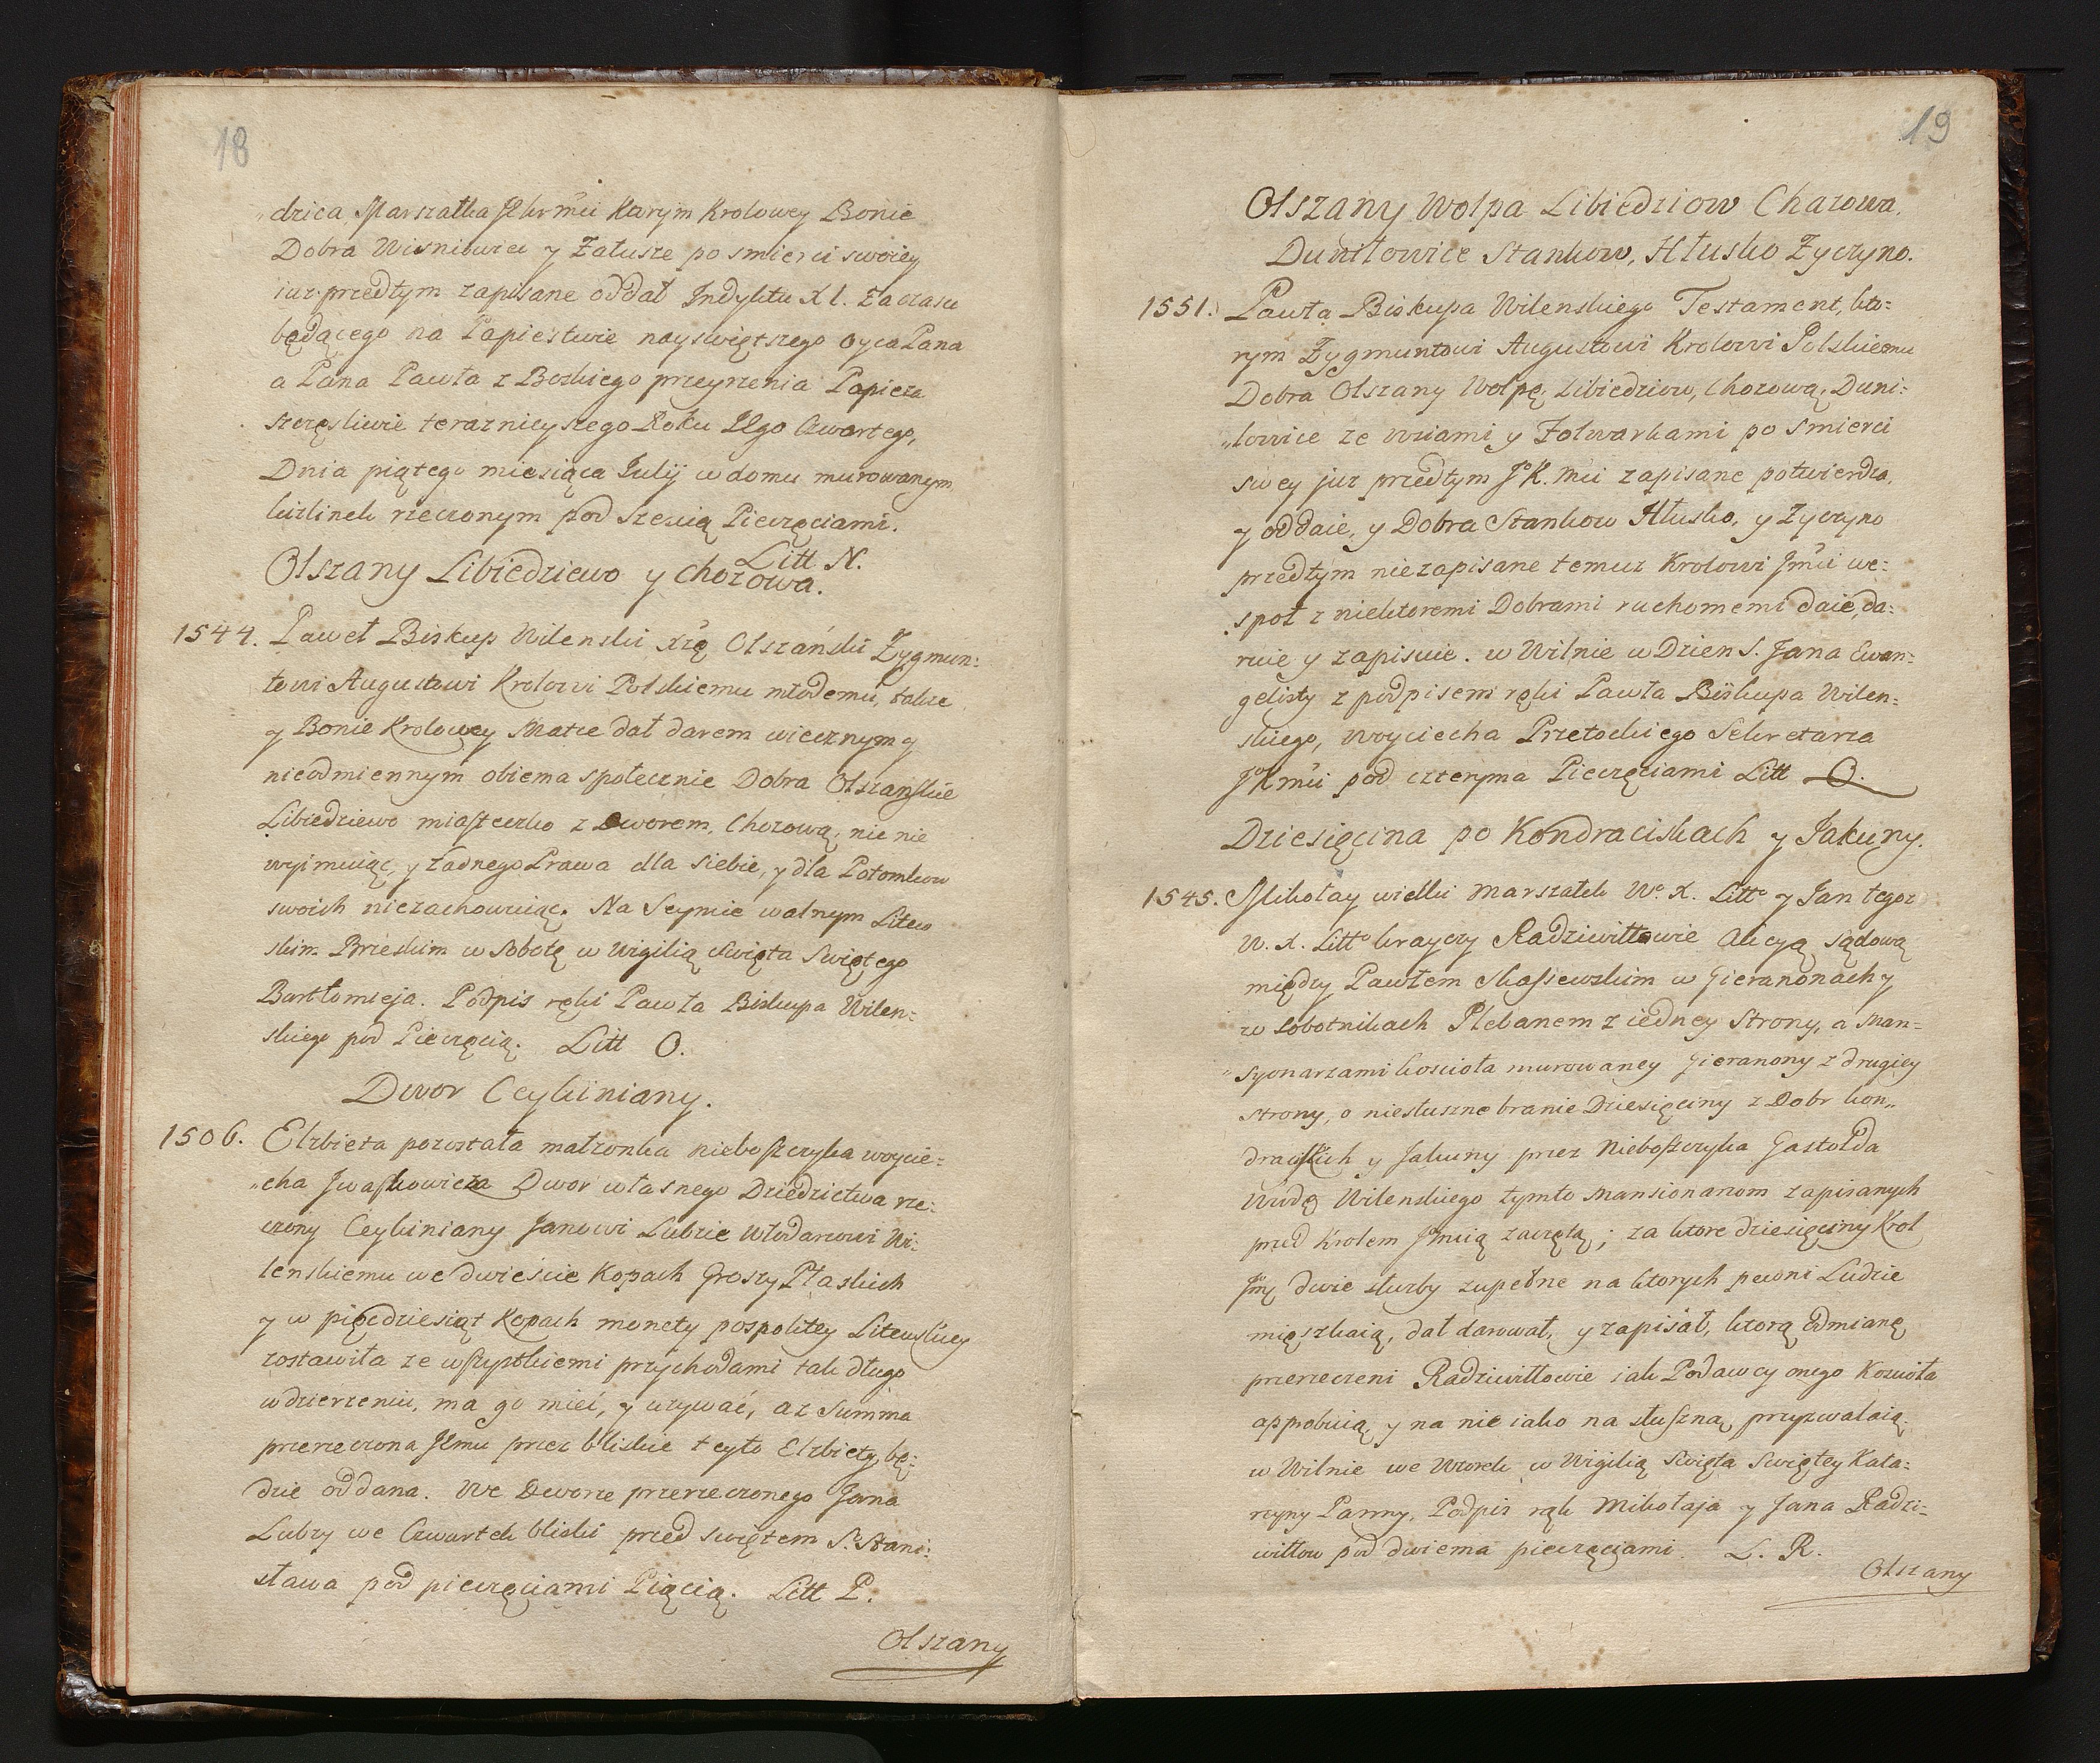 18
„dzica Marszałka JKr mći Karym Krolowey Bonie
Dobra Wisniowiec y Załusze po smierci swoiey
iuz przedtym zapisane oddał Indyktu XI. Za czasu
będącego na Papiestwie nayswiętszego oyca Pana
a Pana Pawła z Boskiego przeyrzenia Papieża
szczęsliwie teraznieyszego Roku IIgo Czwartego,
Dnia piątego miesiąca Julij w domu murowanym
rzeczonym pod Szescią Pieczęciami.
Litt N.
Olszany Libiedziewo y Chozowa.
1544. Paweł Biskup Wilenski Xżę Olszański Zygmun:
towi Augustowi Krolowi Polskiemu młodemu, takze
y Bonie Krolowey Matce dał darem wiecznym y
nieodmiennym obiema społecznie Dobra Olszanskie
Libiedziewo miasteczko z Dworem, Chozową, nic nie
wyimuiąc, y żadnego Prawa dla siebie, y dla Potomkow
swoich niezachowuiąc. Na Seymie walnym Litew
skim Brzeskim w Sobotę w Wigilią Swięta Swiętego
Bartłomieja. Podpis ręki Pawła Biskupa Wilen:
skiego pod Pieczęcią. Litt O.
Dwor Ceykiniany.
1506. Elzbieta pozostała małzonka nieboszczyka woycie:
„cha Jwaszkowicza Dwor własnego Dziedzictwa rze:
czony Ceykiniany Janowi Lubzie Włodarzowi Wi:
lenskiemu we dwieście Kopach Groszy Płaskich
y w pięcdziesiąt Kopach monety pospolitey Litewskiey
zostawiła ze wszystkiemi przychodami tak długo
w dzierzeniu, ma go mieć, y uzywać, az Summa
przerzeczona Jemu przez bliskie teyto Elzbiety bę:
dzie oddana. We Dworze przerzeczonego Jana
Lubzy we Czwartek bliski przed swiętem S. Stani:
sława pod pieczęciami Pięcią. Litt P.
Olszany
19
Olszany Wołpa Libiedziow Chazowa.
Duniłowice Stankow, Hłusko Zyczyno.
1551. Pawła Biskupa Wilenskiego Testament, kto:
rym Zygmuntowi Augustowi Krolowi Polskiemu
Dobra Olszany Wołpę, Libiedziow, Chozową, Duni:
„łowice ze wsiami y Folwarkami po Smierci
swey juz przedtym JoK. Mći zapisane potwierdza,
y oddaie, y Dobra Stankow Hłusko, y Zyczyno
przedtym niezapisane temuz Krolowi Jmći we:
społ z niektoremi Dobrami ruchomemi daie, da:
ruie y zapisuie. w Wilnie w Dzien S. Jana Ewan:
gelisty z podpisem ręki Pawła Biskupa Wilen:
skiego, Woyciecha Przetockiego Sekretarza
JoKmći pod czterma Pieczęciami Litt Q.
Dziesięcina po Kondraciskach y Jakuny.
1545. Mikołay wielki Marszałek Wo. X. Litto y Jan tegoz
W. X. Litto krayczy Radziwiłłowie Akcyą sądową
między Pawłem Skaszewskim w Gieranonach y
w Sobotnikach Plebanem z iedney Strony, a Man=
„syonarzami kosciola murowaney Gieranony z drugiey
strony, o niesłuszne branie Dziesięciny z Dobr Kon„
draciskich y Jakuny przez Nieboszczyka Gastołda
Wwdę Wilenskiego tymto Mansionarzom zapisanych
przed Krolem Jmcią zaczętą; za ktore dziesięciny Krol
Jmć dwie słuzby zupełne na ktorych pewni Ludzie
mięszkaią, dał darował, y zapisał, ktorą odmianę
przerzeczeni Radziwiłłowie iak Podawcy onego Kosciola
approbuią, y na nie iako na słuszną, przyzwalaią.
w Wilnie we Wtorek w Wigilią Swięta Swiętey Kata:
rzyny Panny, Podpis rąk Mikołaja y Jana Radzi:
wiłłow pod dwiema pieczęciami. L. R.
Olszany